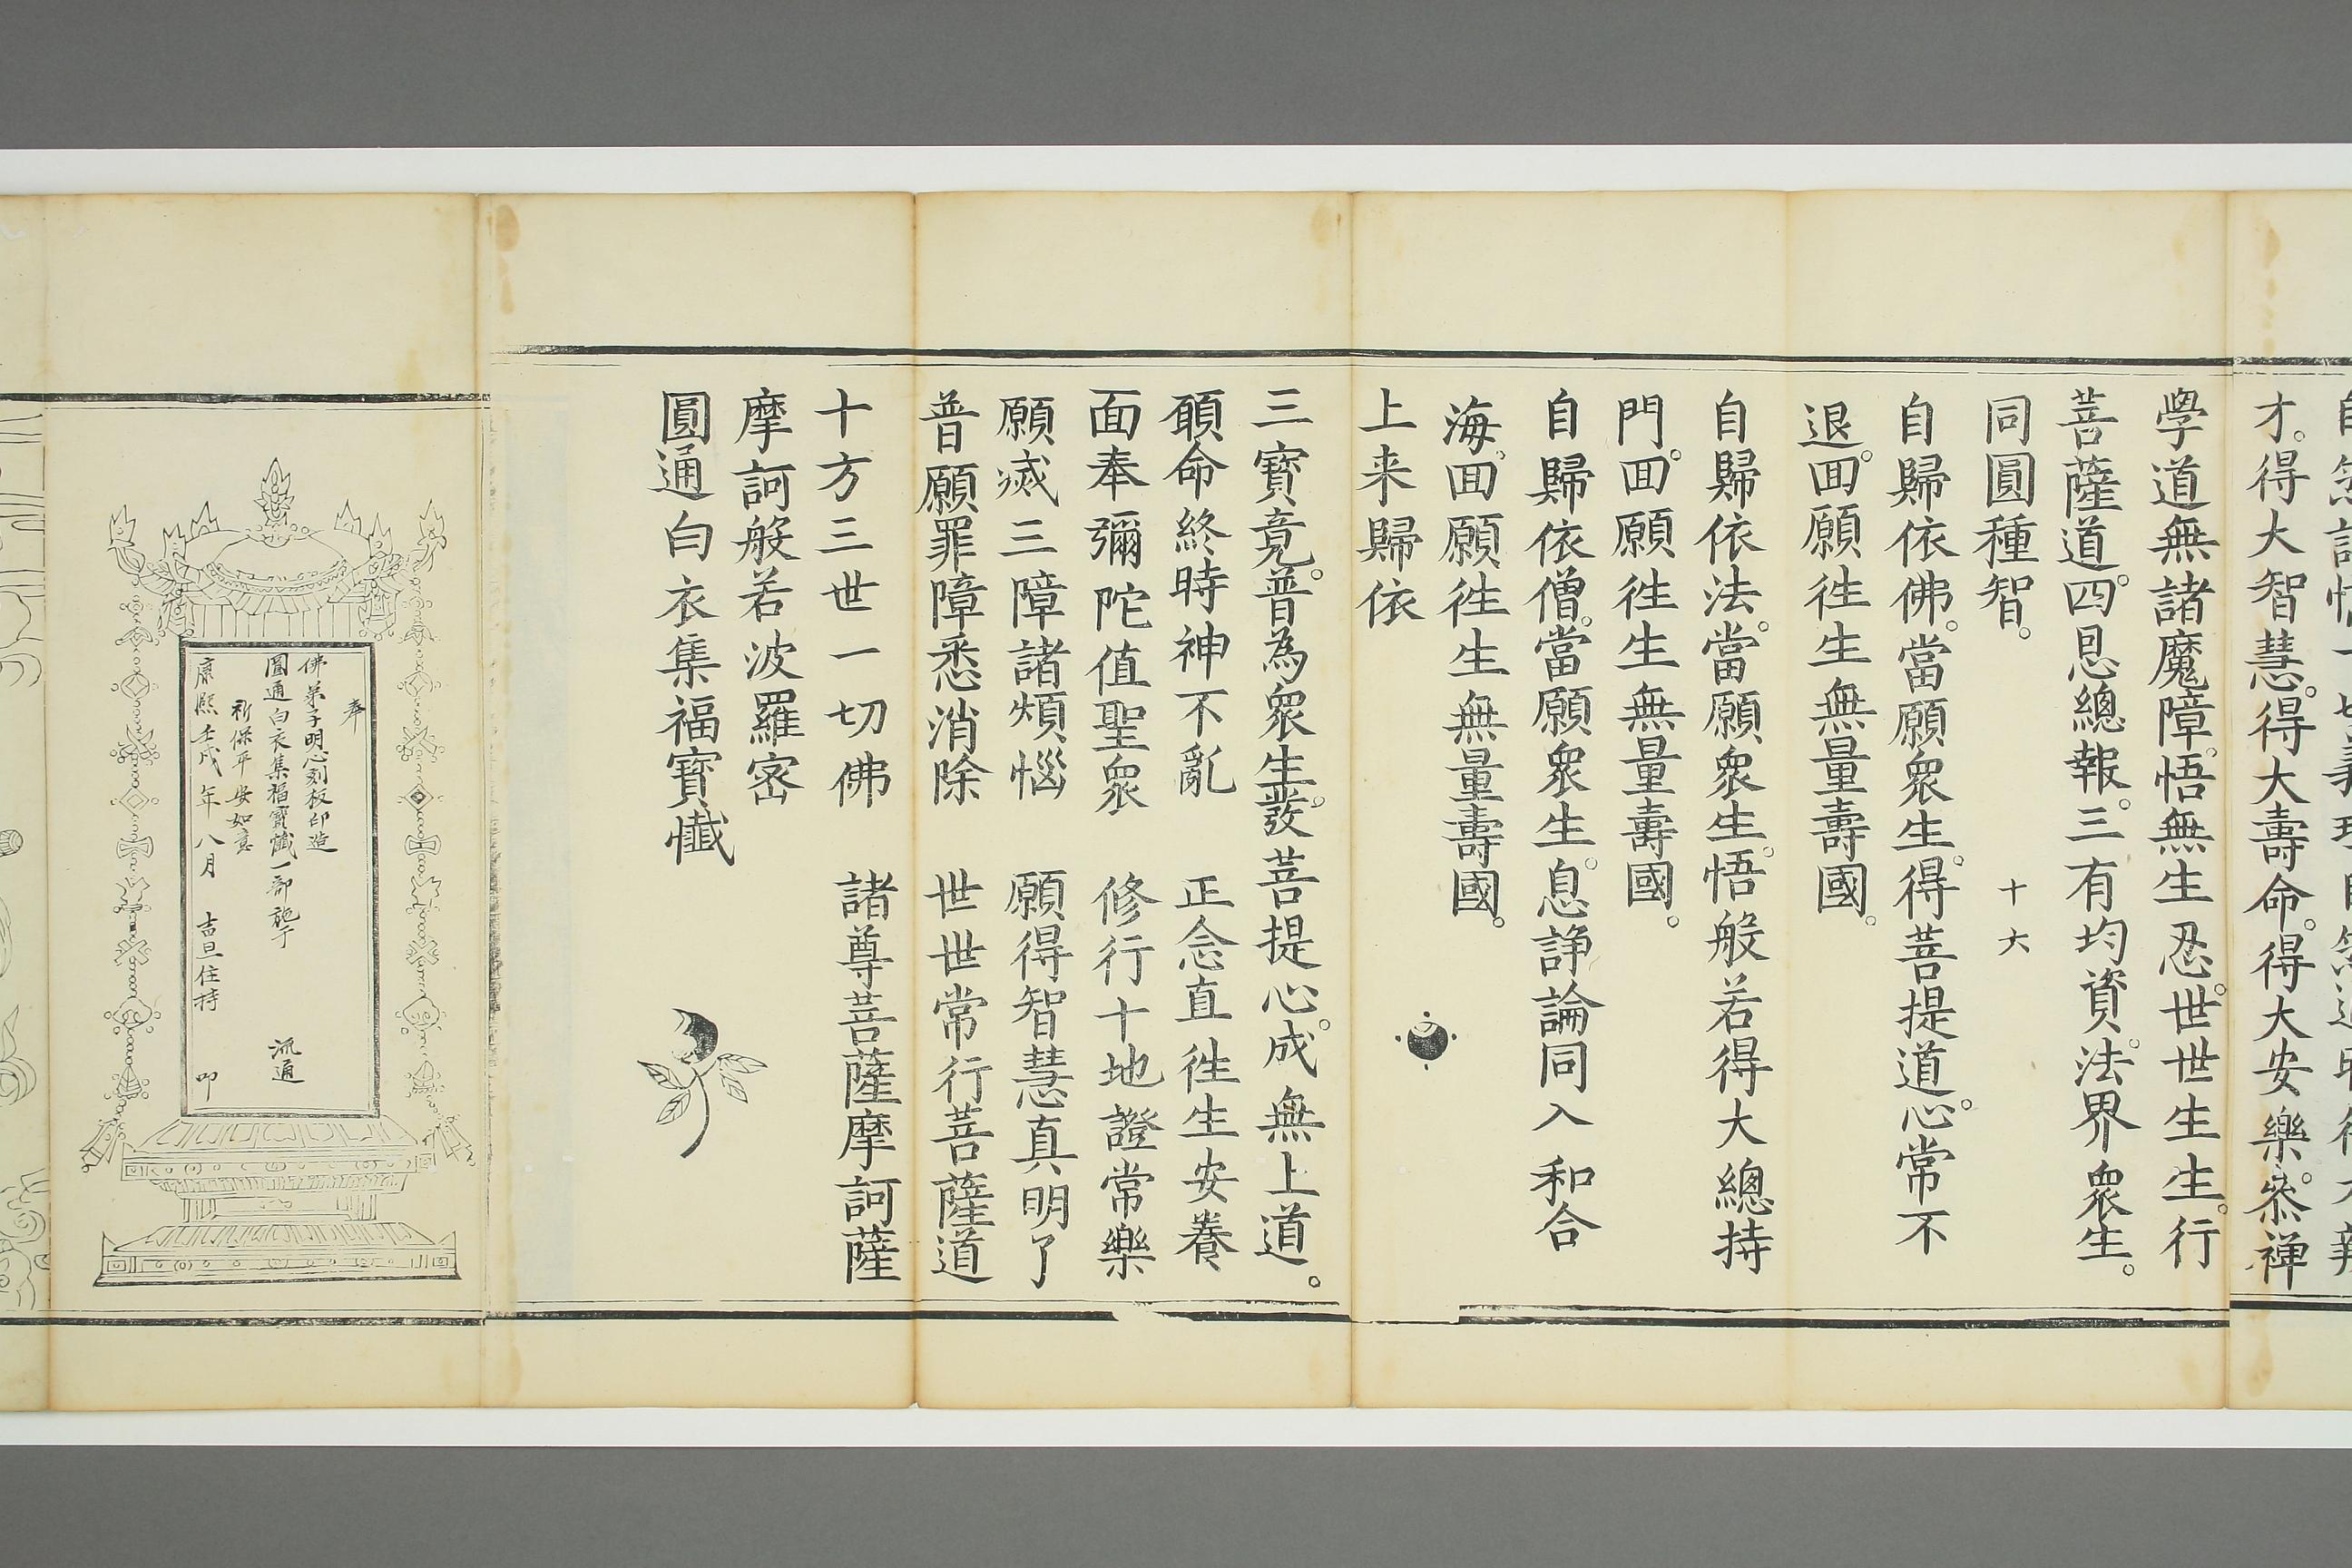 才。得大智慧。得大壽命。得大安樂。叅禪
學道無諸魔障。悟無生忍。世世生生。行
菩薩道。四恩總報。三有均資。法界衆生。
同圓種智。
十六
自歸依佛。當願衆生。得菩提道心。常不
退。囬願徃生無量壽國。
自歸依法。當願衆生。悟般若得大總持
門。囬願徃生無量壽國。
自歸依僧。當願衆生。息諍論同入和合
海。囬願徃生無量壽國。
上来歸依
三寳竟。普為衆生。發菩提心。成無上道。
願命終時神不亂 正念直徃生安養
面奉彌陀值聖衆 修行十地證常樂
願滅三障諸煩惱 願得智慧真明了
普願罪障悉消除 世世常行菩薩道
十方三世一切佛 諸尊菩薩摩訶薩
摩訶般若波羅宻
圓通白衣集福寳懺
奉
佛弟子明心刻板印造
圓通白衣集福寳懺一部施于 流通
祈保平安如意
康熙壬戌年八月 吉旦住持 叩